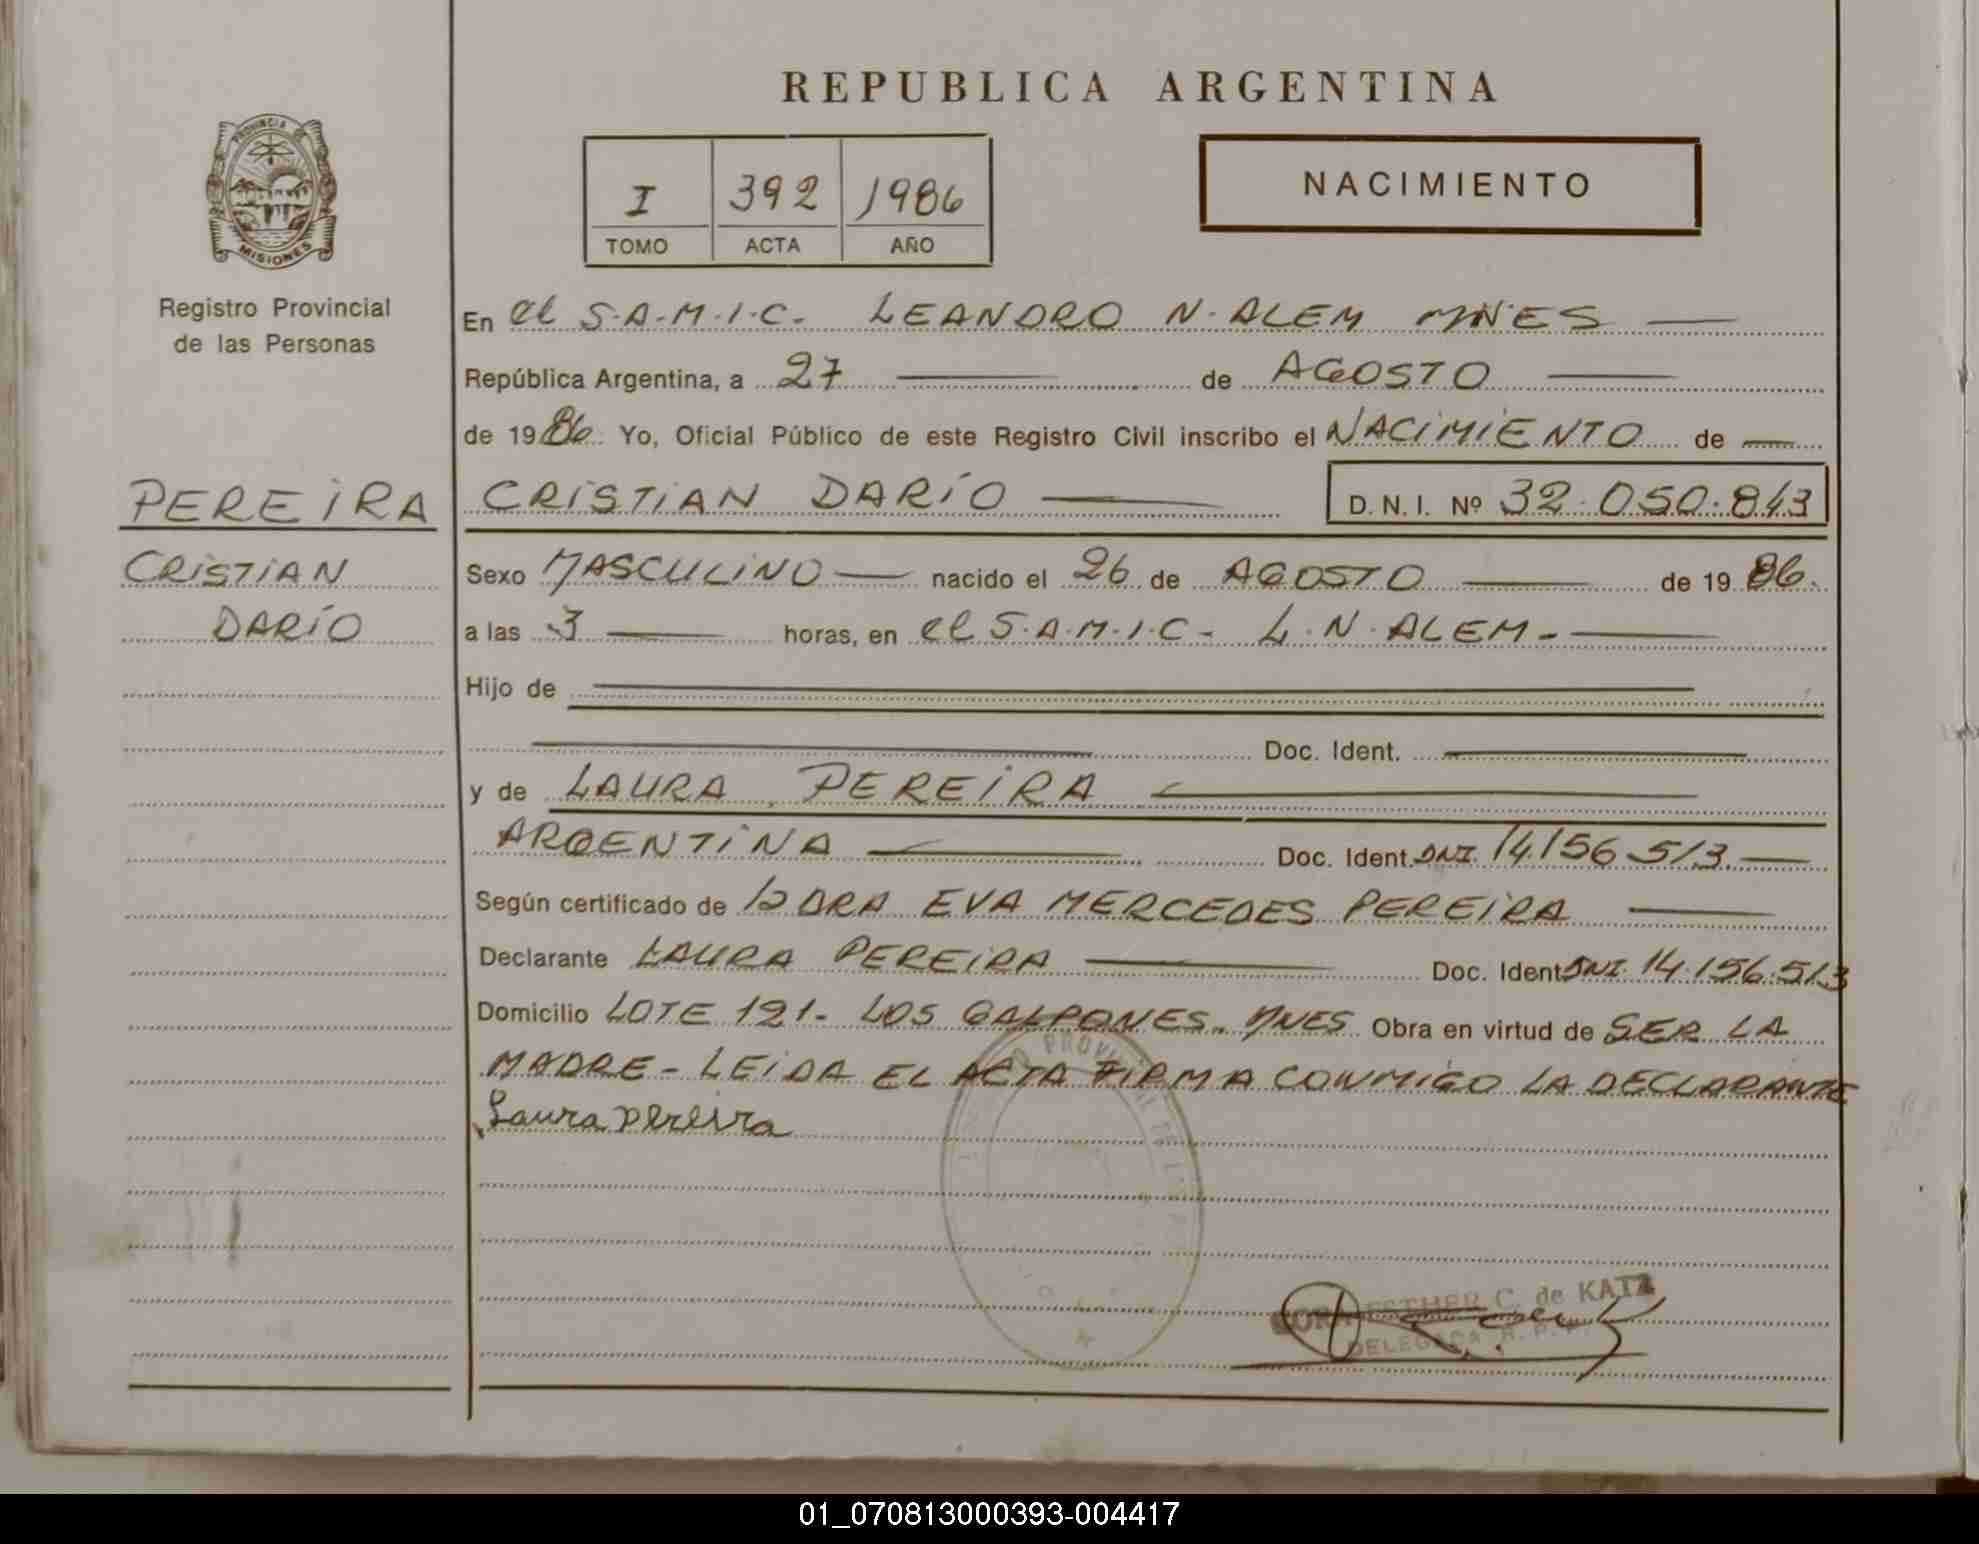 REPUBLICA ARGENTINA
I 392 1986
TOMO ACTA AÑO
NACIMIENTO
PROVINCIA DE
MISIONES
Registro Provincial
de las Personas
En el S.A.M.I.C. LEANDRO N. ALEM MNES
República Argentina, a 27 de AGOSTO
de 1986 Yo, Oficial Público de este Registro Civil inscribo el NACIMIENTO de
PEREIRA CRISTIAN DARÍO D. N. I. Nº 32.050.843
CRISTIAN
DARÍO
Sexo MASCULINO nacido el 26 de AGOSTO de 1986.
a las 3 horas, en el S.A.M.I.C - L.N. ALEM -
Hijo de
Doc. Ident.
y de LAURA PEREIRA
ARGENTINA Doc. Ident. DNI. 14.156.513
Según certificado de la DRA EVA MERCEDES PEREIRA
Declarante LAURA PEREIRA Doc. Ident DNI. 14.156.513
Domicilio LOTE 121 - LOS GALPONES. MNES Obra en virtud de SER LA
MADRE - LEIDA EL ACTA FIRMA CONMIGO LA DECLARANTE
Laura Pereira
ESTHER C. de KATZ
DELEGADA R. P. P.
01_070813000393-004417